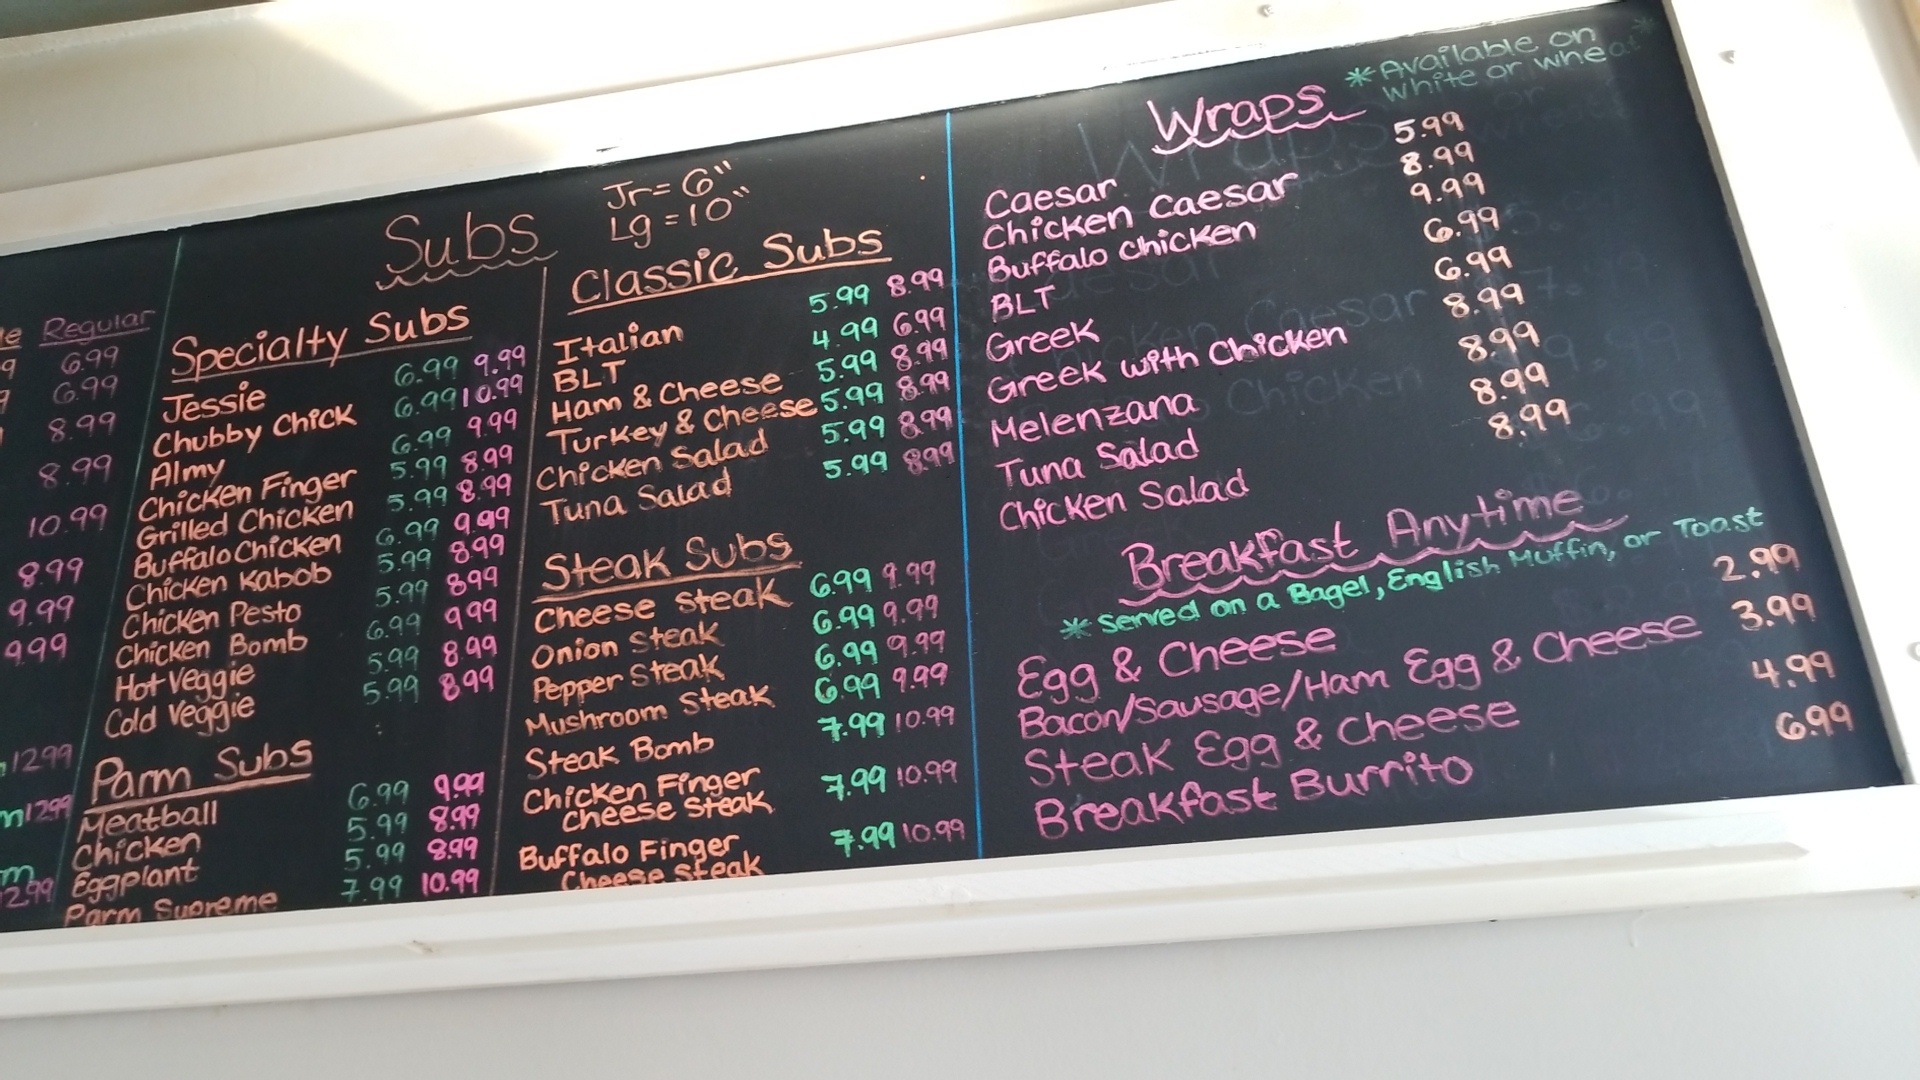 Regular
6.99
6.99
8.99
8.99
10.99
8.99
9.99
9.99
12.99
12.99
12.99
Subs
Jr = 6"
Lg = 10"
Specialty Subs
Jessie 6.99 9.99
Chubby Chick 6.99 10.99
Almy 6.99 9.99
Chicken Finger 5.99 8.99
Grilled Chicken 5.99 8.99
Buffalo Chicken 6.99 9.99
Chicken Kabob 5.99 8.99
Chicken Pesto 5.99 8.99
Chicken Bomb 6.99 9.99
Hot Veggie 5.99 8.99
Cold Veggie 5.99 8.99
Parm Subs
Meatball 6.99 9.99
Chicken 5.99 8.99
Eggplant 5.99 8.99
Parm Supreme 7.99 10.99
Classic Subs
Italian 5.99 8.99
BLT 4.99 6.99
Ham & Cheese 5.99 8.99
Turkey & Cheese 5.99 8.99
Chicken Salad 5.99 8.99
Tuna Salad 5.99 8.99
Steak Subs
Cheese steak 6.99 9.99
Onion Steak 6.99 9.99
Pepper Steak 6.99 9.99
Mushroom Steak 6.99 9.99
Steak Bomb 7.99 10.99
Chicken Finger
Cheese Steak 7.99 10.99
Buffalo Finger
Cheese Steak 7.99 10.99
Wraps
*Available on
white or wheat*
Caesar 5.99
Chicken Caesar 8.99
Buffalo Chicken 9.99
BLT 6.99
Greek 6.99
Greek with Chicken 8.99
Melenzana 8.99
Tuna Salad 8.99
Chicken Salad 8.99
Breakfast Anytime
* Served on a Bagel, English Muffin, or Toast
Egg & Cheese 2.99
Bacon/Sausage/Ham Egg & Cheese 3.99
Steak Egg & Cheese 4.99
Breakfast Burrito 6.99